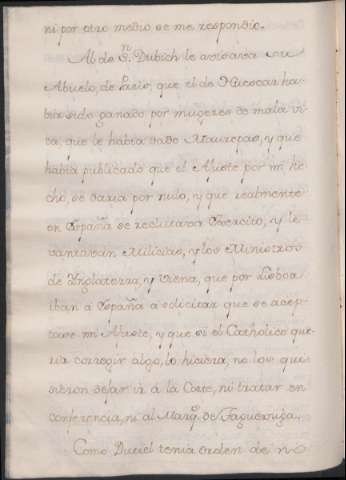 ni por otro medio se me respondió.
Al de Sn. Dubich le avisaba su
Abuelo, de Paris, que el de Huescar ha-
bia sido ganado por mugeres de mala vi-
da, que le habia dado Maurepas, y que
habia publicado que el Ajuste por mi he-
cho, se daria por nulo, y que realmente
en España se reclutava Exercito, y le-
vantavan Milicias, y los Ministros
de Ynglaterra, y Viena, que por Lisboa
iban á España á solicitar que se acep-
tase mi Ajuste, y que si el Catholico que-
ria corregir algo, lo hiciera, no los qui-
sieron dejar ir á la Corte, ni tratar en
conferencia, ni al Marq.s de Taguerniga.
Como Duciel tenia orden de no